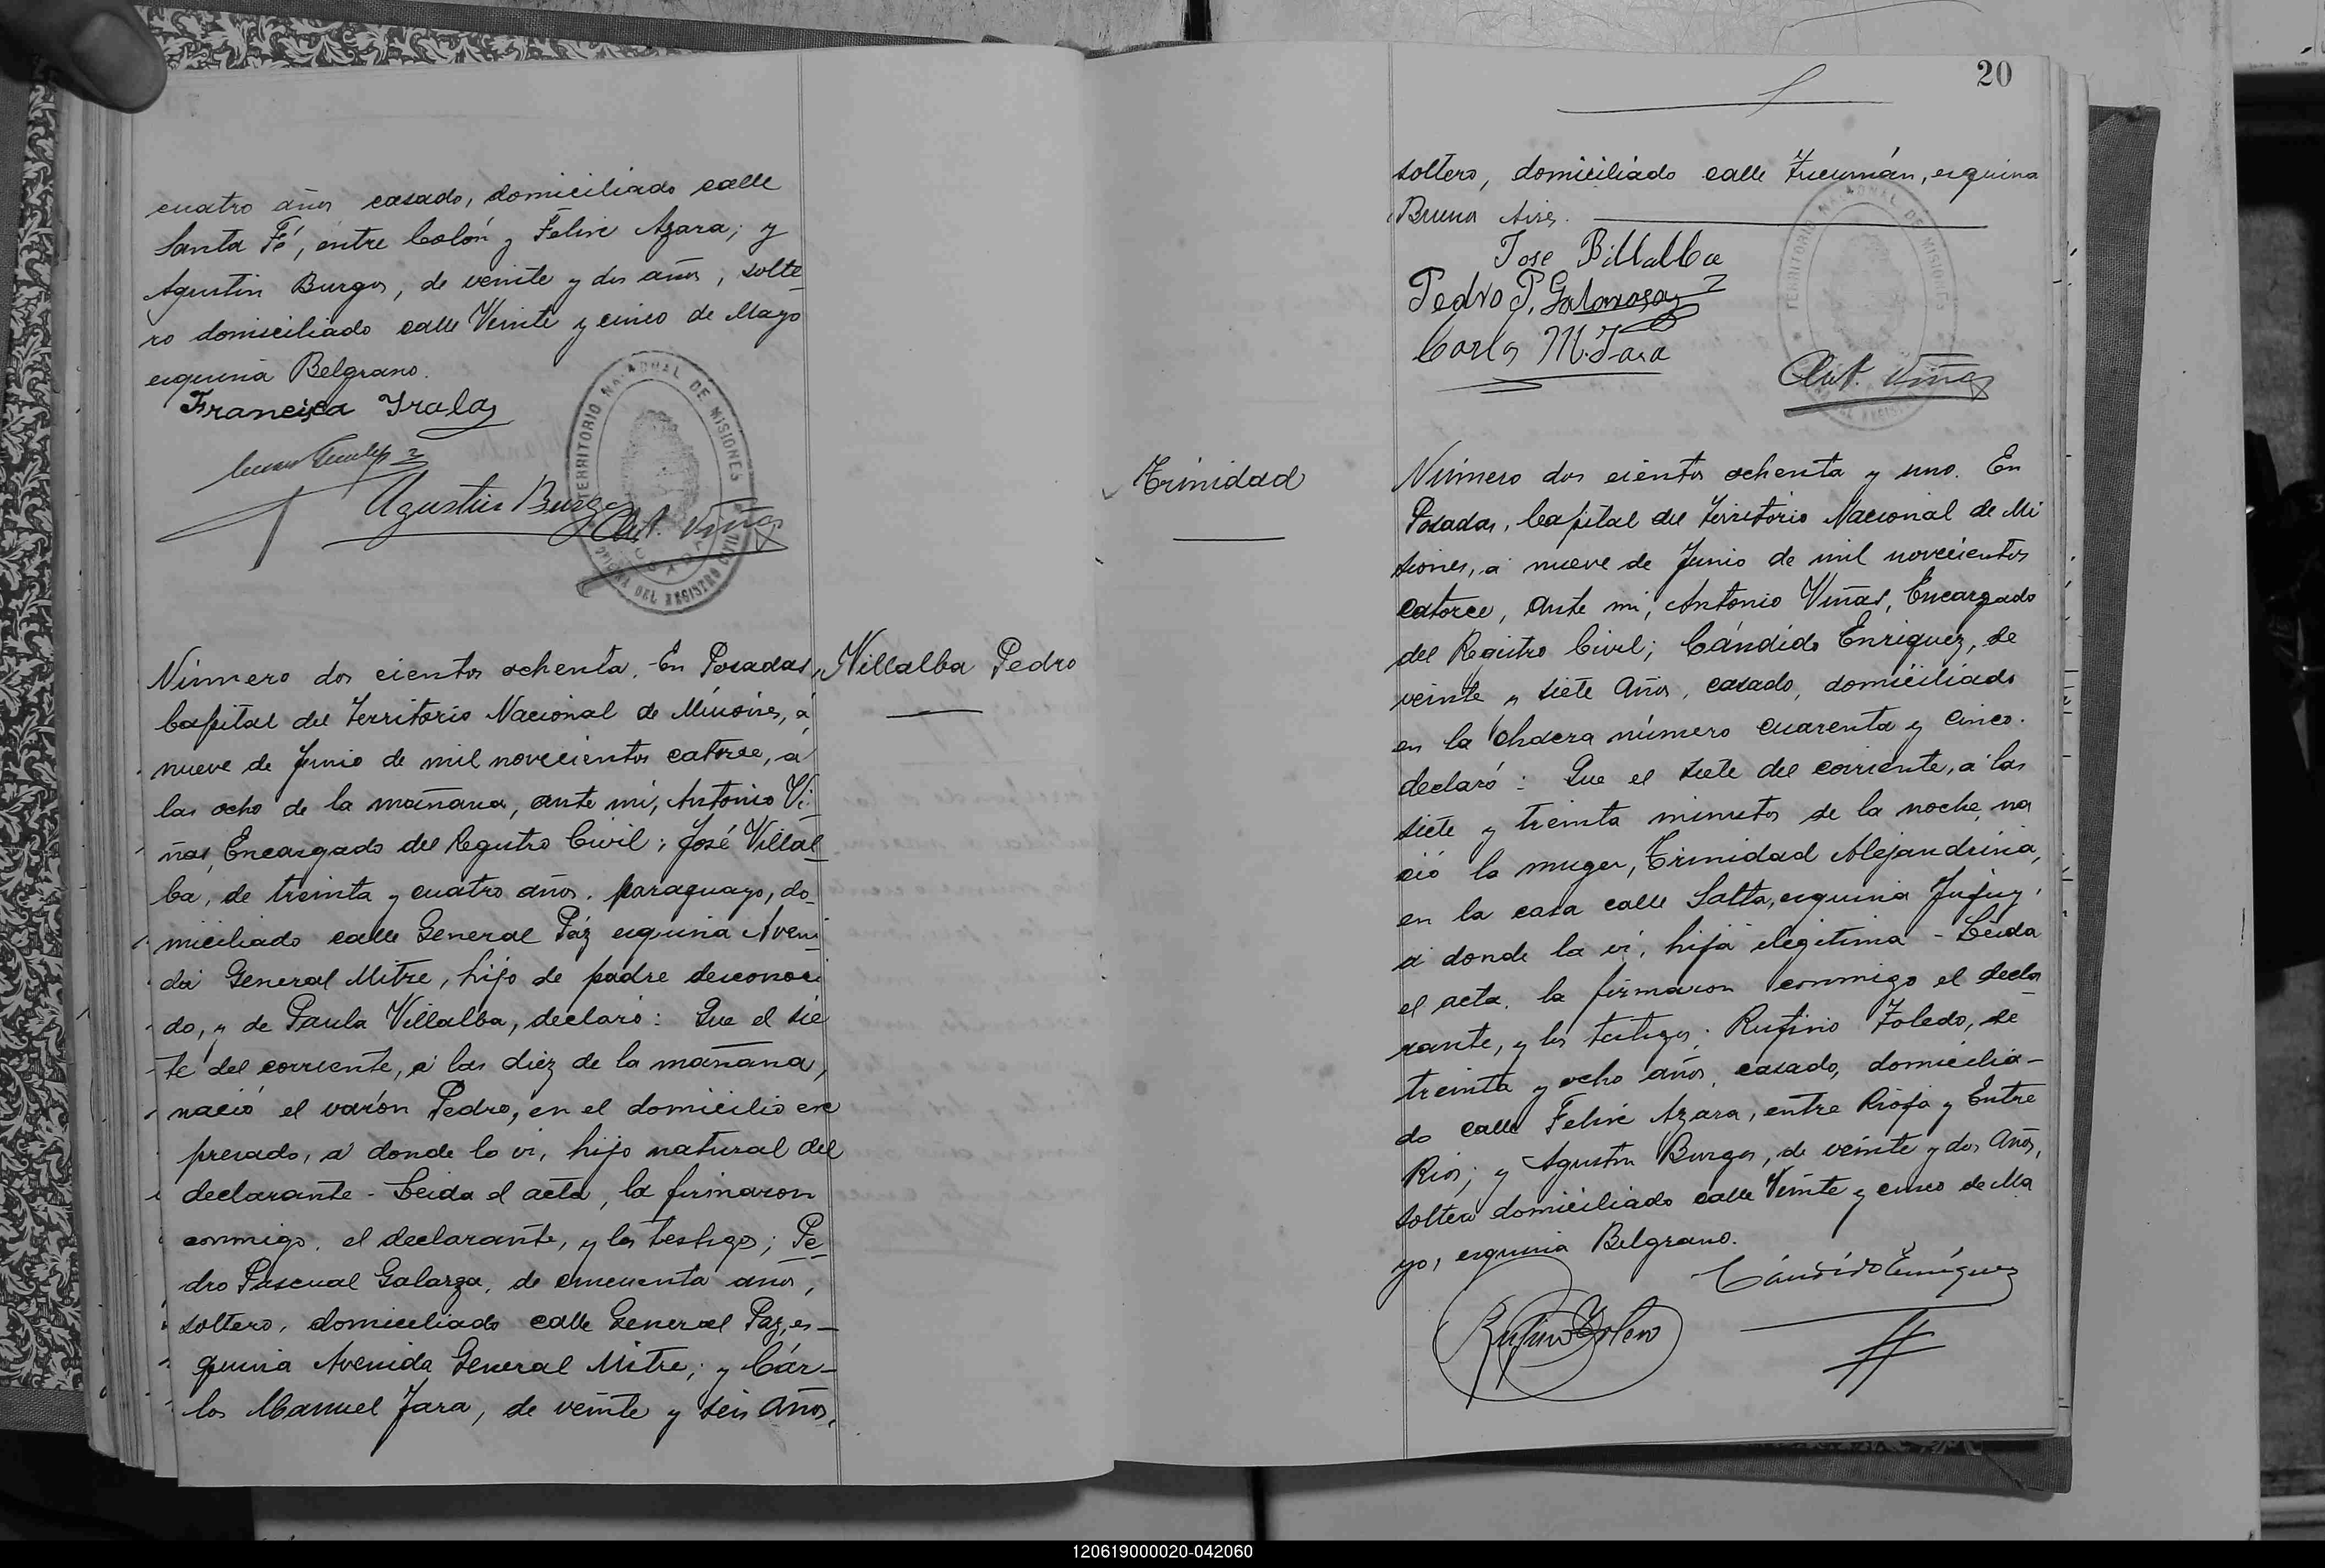 cuatro años casado, domiciliado calle
Santa Fé, entre Colón y Felix Azara; y
Agustin Burgos, de veinte y dos años, solte_
ro domiciliado calle Veinte y cinco de Mayo
esquina Belgrano.
Francisca Irala
Agustin Burgos
Ant. Viñas
TERRITORIO NACIONAL DE MISIONES
OFICINA DEL REGISTRO CIVIL
Número dos cientos ochenta. En Posadas,
Villalba Pedro
Capital del Territorio Nacional de Misiones, á
nueve de Junio de mil novecientos catorce, á
las ocho de la mañana, ante mi, Antonio Vi_
ñas, Encargado del Registro Civil; José Villal_
ba, de treinta y cuatro años, paraguayo, do_
miciliado calle General Páz esquina Aveni_
da General Mitre, hijo de padre desconoci
do, y de Paula Villalba, declaró: Que el sie
te del corriente, á las diez de la mañana,
nació el varón Pedro, en el domicilio ex
presado, á donde lo vi, hijo natural del
declarante - Leida el acta, la firmaron
conmigo, el declarante, y los testigos; Pe_
dro Pascual Galarza, de cincuenta años,
soltero, domiciliado calle General Paz, es_
quina Avenida General Mitre; y Cár_
los Manuel Jara, de veinte y seis años,
20
soltero, domiciliado calle Tucumán, esquina
Buenos Aires.
Jose Billalba
Pedro P. Galarza
Carlos M. Jara
Ant. Viñas
TERRITORIO NACIONAL DE MISIONES
Trinidad
Número dos cientos ochenta y uno. En
Posadas, Capital del Territorio Nacional de Mi
siones, á nueve de Junio de mil novecientos
catorce, ante mi, Antonio Viñas, Encargado
del Registro Civil; Cándido Enriquez, de
veinte y siete años, casado, domiciliado
en la chacra número cuarenta y cinco.
declaró: Que el siete del corriente, á las
siete y treinta minutos de la noche, na
ció la muger, Trinidad Alejandrina,
en la casa calle Salta, esquina Jujuy,
á donde la vi, hija ilegitima - Leida
el acta, la firmaron conmigo el decla
rante, y los testigos; Rufino Toledo, de
treinta y ocho años, casado, domicilia_
do calle Felix Azara, entre Rioja y Entre
Rios; y Agustin Burgos, de veinte y dos años,
soltero domiciliado calle Veinte y cinco de Ma
yo, esquina Belgrano.
Cándido Enriquez
Rufino Toledo
120619000020-042060